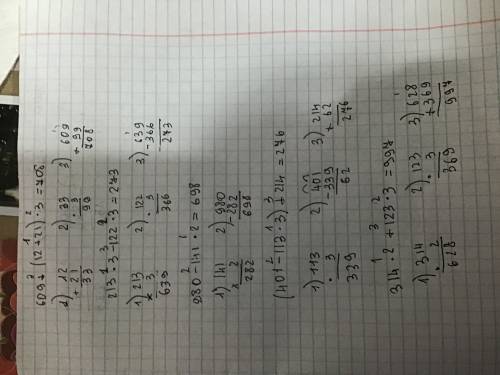 609 + (12+21) · 3 = 708
1) 12 + 21 = 33 2) 33 · 3 = 99 3) 609 + 99 = 708
213 · 3 - 122 · 3 = 273
1) 213 × 3 = 639 2) 122 · 3 = 366 3) 639 - 366 = 273
980 - 141 · 2 = 698
1) 141 × 2 = 282 2) 980 - 282 = 698
(401 - 113 · 3) + 214 = 276
1) 113 · 3 = 339 2) 401 - 339 = 62 3) 214 + 62 = 276
314 · 2 + 123 · 3 = 997
1) 314 · 2 = 628 2) 123 · 3 = 369 3) 628 + 369 = 997